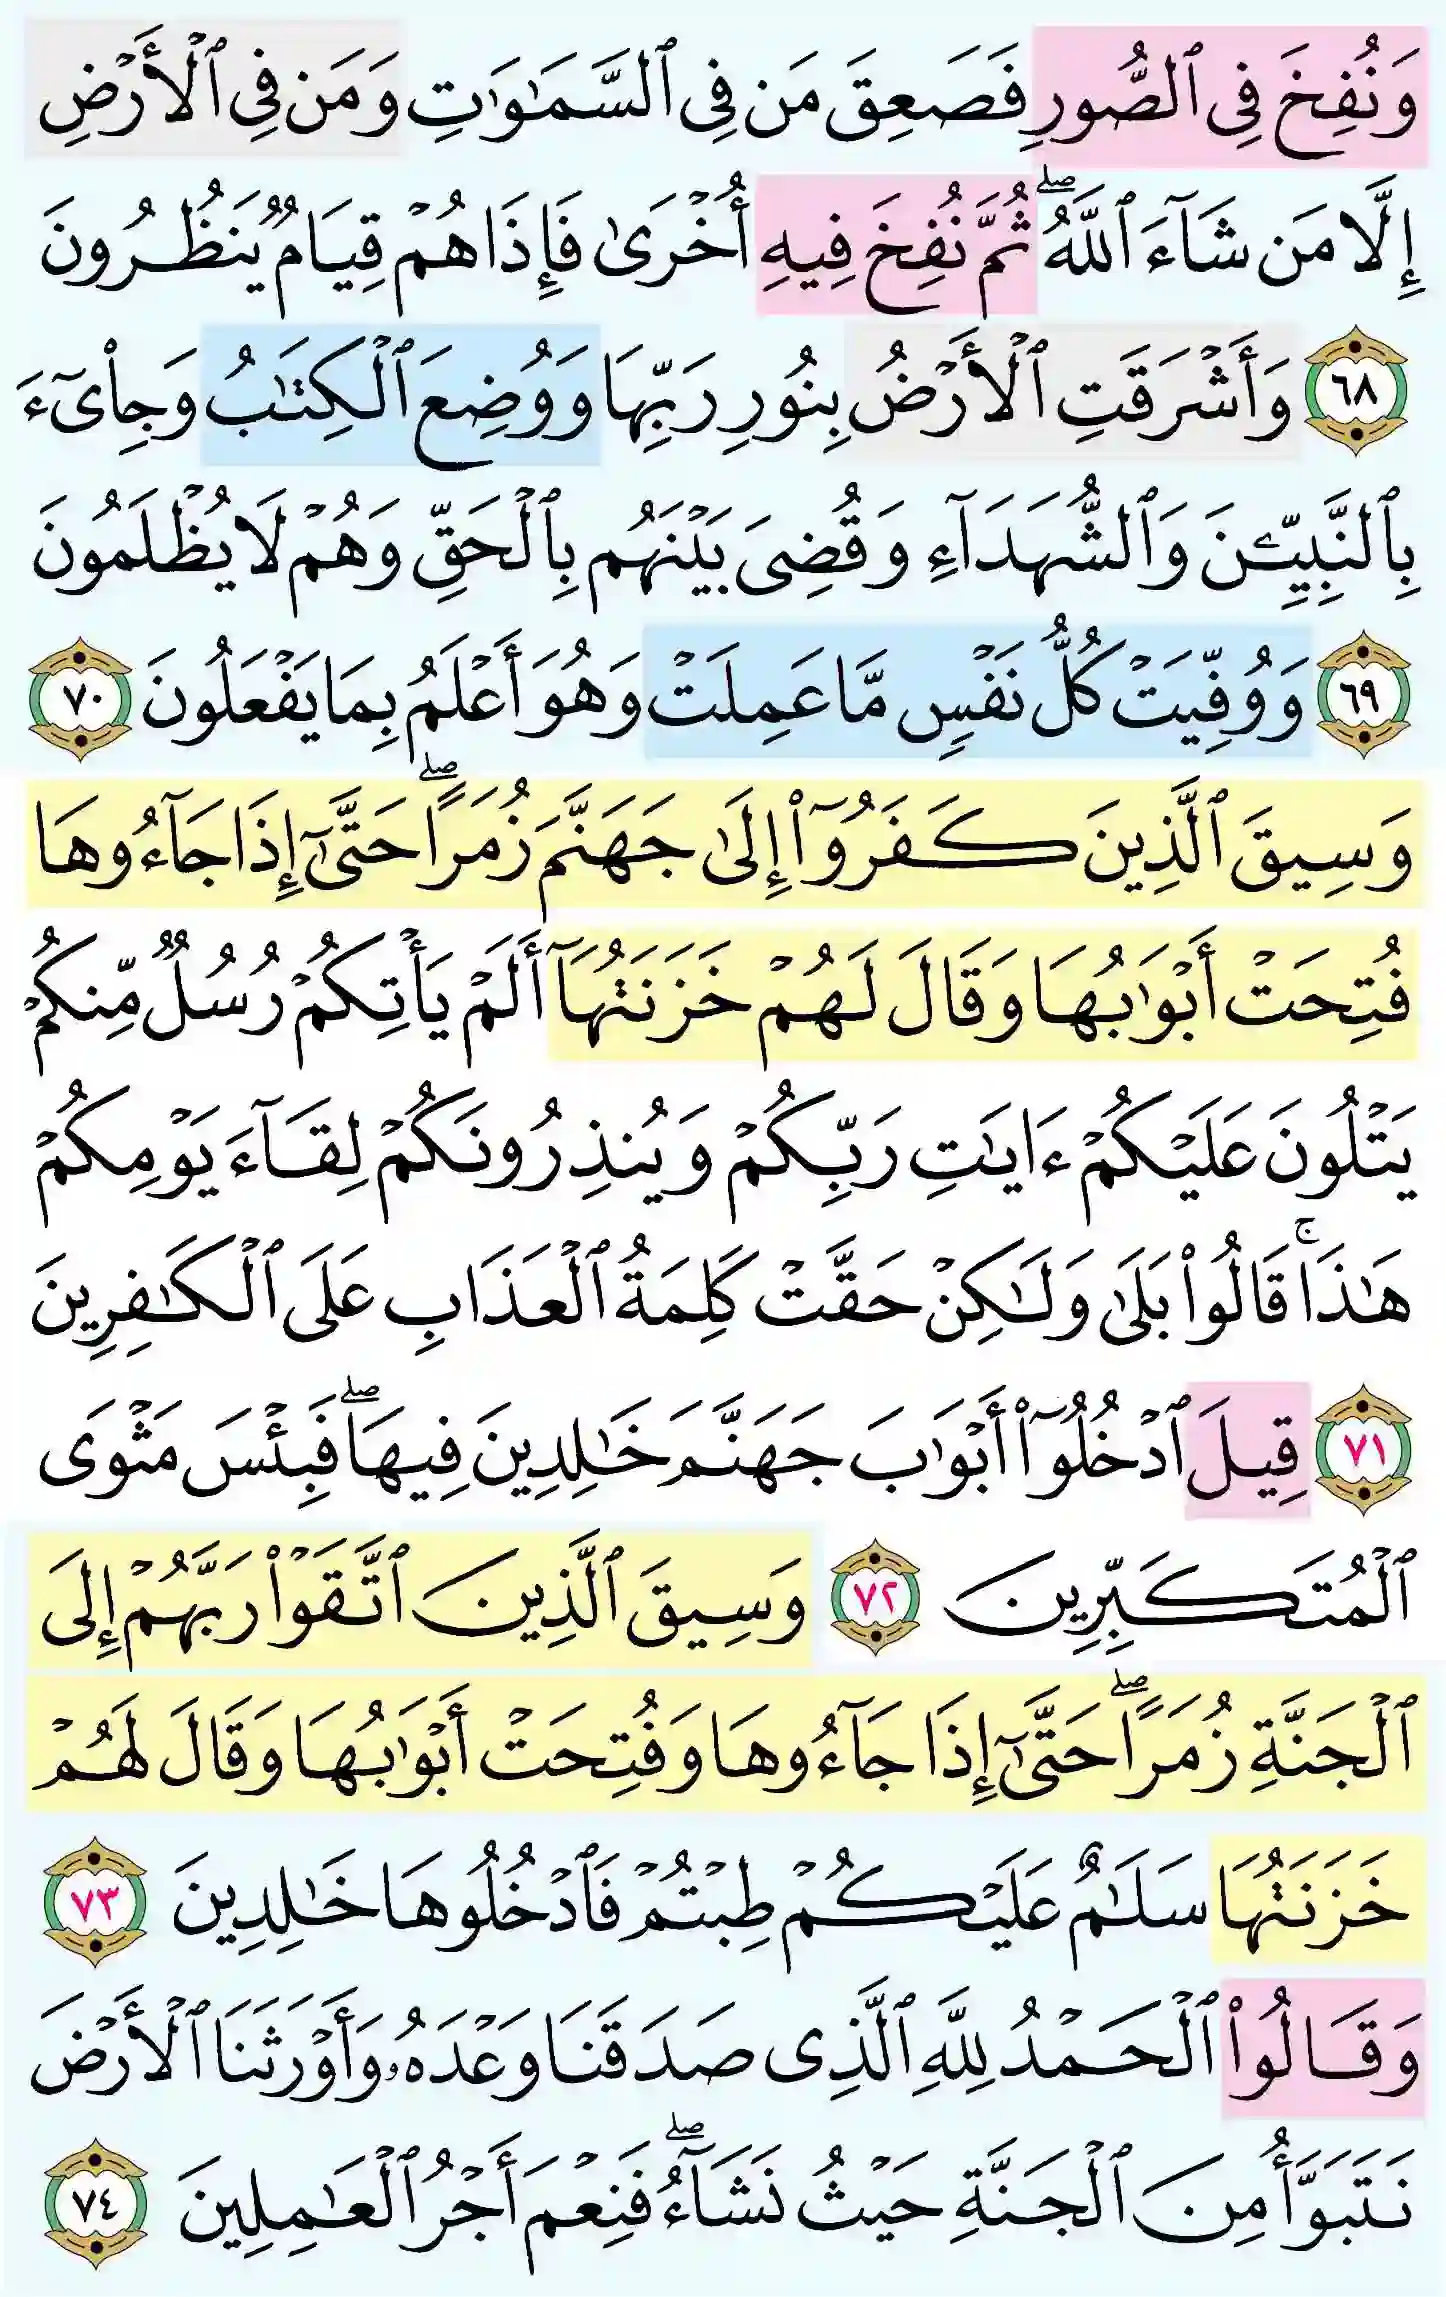 وَنُفِخَ فِى ٱلصُّورِ فَصَعِقَ مَن فِى ٱلسَّمَٰوَٰتِ وَمَن فِى ٱلْأَرْضِ
إِلَّا مَن شَآءَ ٱللَّهُ ۖ ثُمَّ نُفِخَ فِيهِ أُخْرَىٰ فَإِذَا هُمْ قِيَامٌ يَنظُرُونَ
٦٨ وَأَشْرَقَتِ ٱلْأَرْضُ بِنُورِ رَبِّهَا وَوُضِعَ ٱلْكِتَٰبُ وَجِا۟ىٓءَ
بِٱلنَّبِيِّۦنَ وَٱلشُّهَدَآءِ وَقُضِىَ بَيْنَهُم بِٱلْحَقِّ وَهُمْ لَا يُظْلَمُونَ
٦٩ وَوُفِّيَتْ كُلُّ نَفْسٍ مَّا عَمِلَتْ وَهُوَ أَعْلَمُ بِمَا يَفْعَلُونَ ٧٠
وَسِيقَ ٱلَّذِينَ كَفَرُوٓا۟ إِلَىٰ جَهَنَّمَ زُمَرًا ۖ حَتَّىٰٓ إِذَا جَآءُوهَا
فُتِحَتْ أَبْوَٰبُهَا وَقَالَ لَهُمْ خَزَنَتُهَآ أَلَمْ يَأْتِكُمْ رُسُلٌ مِّنكُمْ
يَتْلُونَ عَلَيْكُمْ ءَايَٰتِ رَبِّكُمْ وَيُنذِرُونَكُمْ لِقَآءَ يَوْمِكُمْ
هَٰذَا ۚ قَالُوا۟ بَلَىٰ وَلَٰكِنْ حَقَّتْ كَلِمَةُ ٱلْعَذَابِ عَلَى ٱلْكَٰفِرِينَ
٧١ قِيلَ ٱدْخُلُوٓا۟ أَبْوَٰبَ جَهَنَّمَ خَٰلِدِينَ فِيهَا ۖ فَبِئْسَ مَثْوَى
ٱلْمُتَكَبِّرِينَ ٧٢ وَسِيقَ ٱلَّذِينَ ٱتَّقَوْا۟ رَبَّهُمْ إِلَى
ٱلْجَنَّةِ زُمَرًا ۖ حَتَّىٰٓ إِذَا جَآءُوهَا وَفُتِحَتْ أَبْوَٰبُهَا وَقَالَ لَهُمْ
خَزَنَتُهَا سَلَٰمٌ عَلَيْكُمْ طِبْتُمْ فَٱدْخُلُوهَا خَٰلِدِينَ ٧٣
وَقَالُوا۟ ٱلْحَمْدُ لِلَّهِ ٱلَّذِى صَدَقَنَا وَعْدَهُۥ وَأَوْرَثَنَا ٱلْأَرْضَ
نَتَبَوَّأُ مِنَ ٱلْجَنَّةِ حَيْثُ نَشَآءُ ۖ فَنِعْمَ أَجْرُ ٱلْعَٰمِلِينَ ٧٤